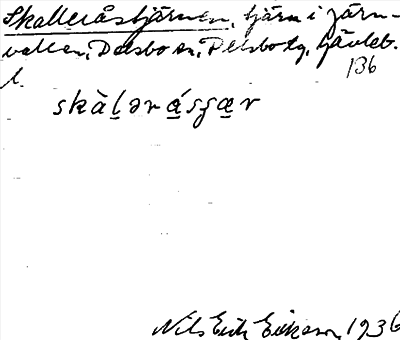 Skalleråstjärnen, tjärn i Järn-
vallen, Delsbo sn, Delsbo tg, Gävleb.
l. 136
skàl̠ər á̠sʒæ̠r
Nils Erik Eriksson 1936